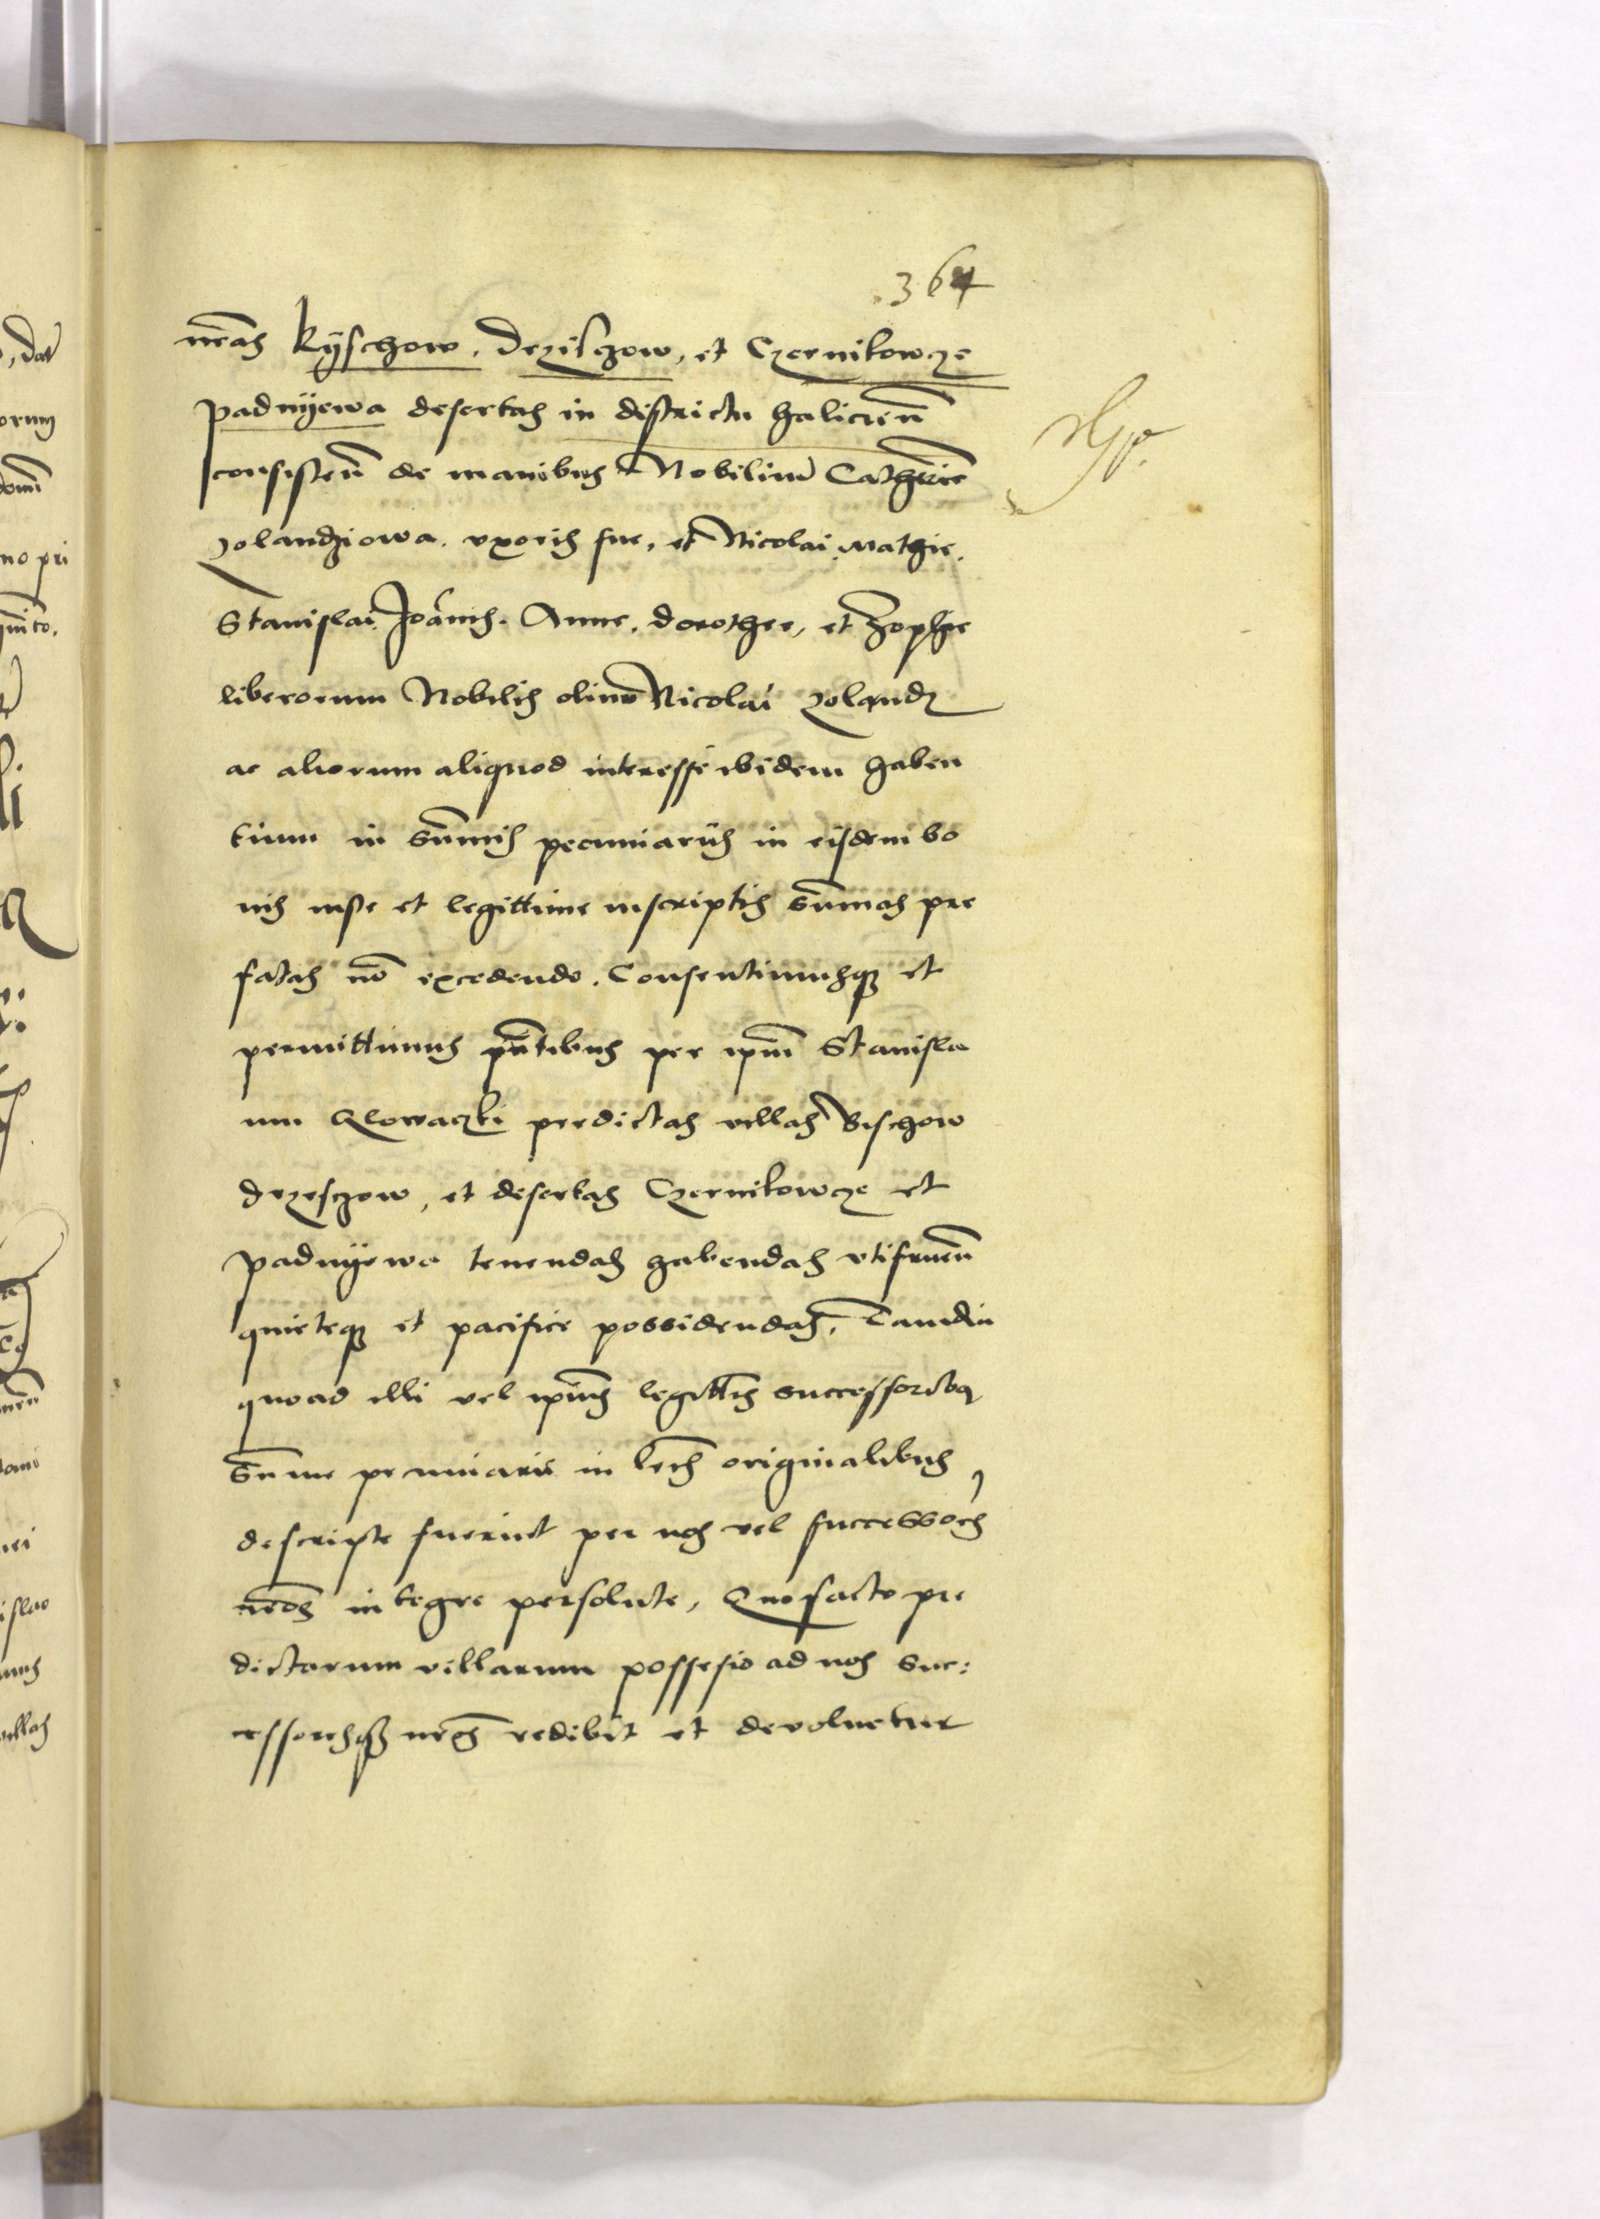 364
nrãs Kyschow, Drziſchow, et Czernikowcze
Padnyewa desertas in districtu haliciẽn
consistẽn de manibus Nobilium Catherĩe
Zolandziowa. uxoris sue, et Nicolai Mathie,
Stanislai, Joãnis. Anne, dorothee, et Zophie
liberorum Nobilis olim Nicolai Zolandz
ac aliorum aliquod interesse ibidem haben
tium in Sum̃is pecuniarijs in eisdem bo
nis iuste et legittime inscriptis Sum̃as pre
fatas nõ excedendo. Consentimusque et
permittimus pñtibus per ipm̃ Stanisla
um Glowaczki predictas villas Kischow
Drzeschow, et desertas Czernikowcze et
Padnyewa tenendas habendas utifruẽn
quieteque et pacifice possidendas, Tamdiu
quoad illi vel ipius legittĩs successoribus
Sum̃e pecuniarie in lrĩs originalibus
descripte fuerint per nos vel successores
nr̃os integre persolute, Quo facto pre
dictarum villarum possesio ad nos Suc:
cessoresque nr̃os redibit et devoluetur